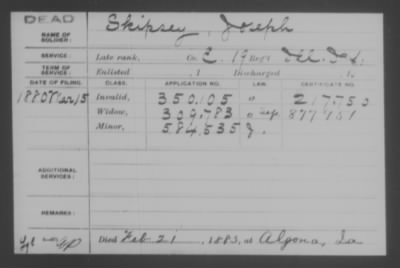 DEAD
NAME OF SOLDIER: Skipsey, Joseph
SERVICE: Late rank, Co. E. 19 Reg't Ill. Inf.
TERM OF SERVICE: Enlisted , 1 Discharged , 1
DATE OF FILING. CLASS. APPLICATION NO. LAW. CERTIFICATE NO.
1880 Mar 15 Invalid, 350,105 217,750
Widow, 309,783
Minor, 584,535
ADDITIONAL SERVICES:
REMARKS:
Died Feb 21, 1883, at Algona, Ia